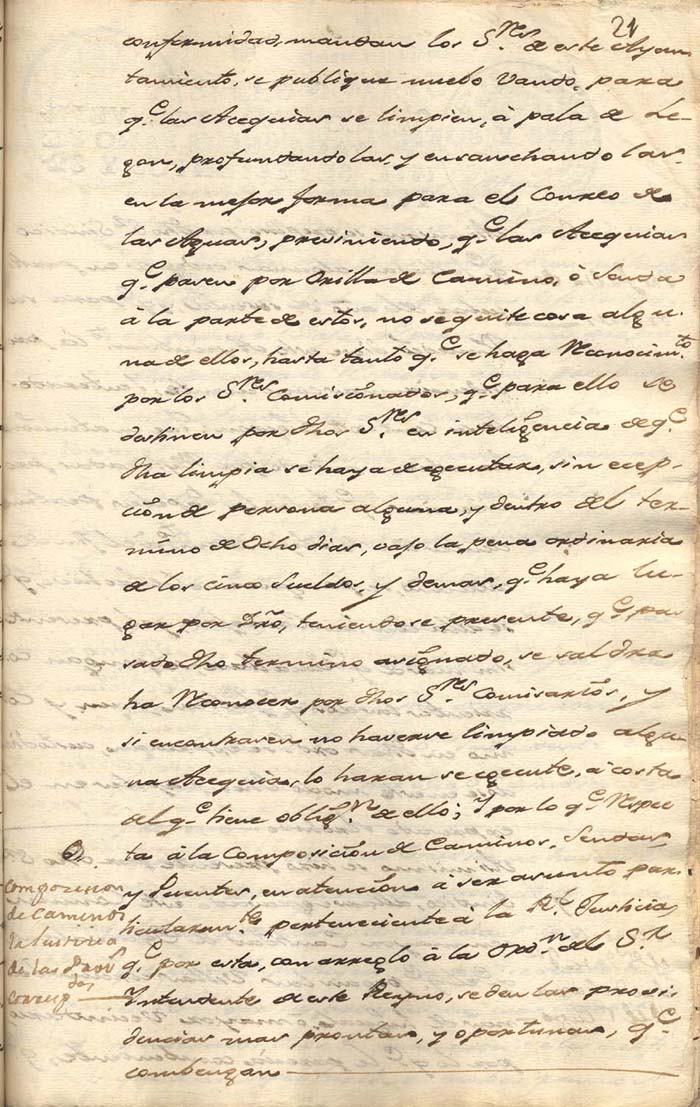 21
conformidad, mandan los S.res de este Ayun
tamiento, se publique nuebo vando, para
q.e las Acequias se limpien, à pala de Le-
gon, profundandolas, y ensanchandolas
en la mejor forma para el Correo de
las Aguas, previniendo, q.e las Acequias
q.e pasen por Orilla de Camino, ò Senda
à la parte de estos, no se quite cosa algu-
na de ellos, hasta tanto q.e se haga Reconocim.to
por los S.res Comisionados, q.e para ello se
destinen por dhos S.res en inteligencia de q.e
dha limpia se haya de egecutar, sin ecep-
cion de persona alguna, y dentro del ter-
mino de Ocho dias, vajo la pena ordinaria
de los cinco Sueldos, y demas, q.e haya lu-
gar por dro, teniendose presente, q.e pa
sado dho termino asignado, se saldra
ha Reconocer por dhos S.res Comisarios, y
si encontraren no haverse limpiado algu
na Acequia, lo haran se egecute, à costa
del q.e tiene oblig.n de ello; Y por lo q.e Respec
ta à la Composicion de Caminos, Sendas,
y Puentes, en atencion à ser asunto par
ticularm.te perteneciente à la R.l Justicia,
q.e por esta, con arreglo à la Orð.n del S.r
Intendente de este Reyno, se den las provi
dencias mas prontas, y oportunas, q.e
combengan
Composicion
de Caminos
la Justicia
de las Prov.s
corresp.